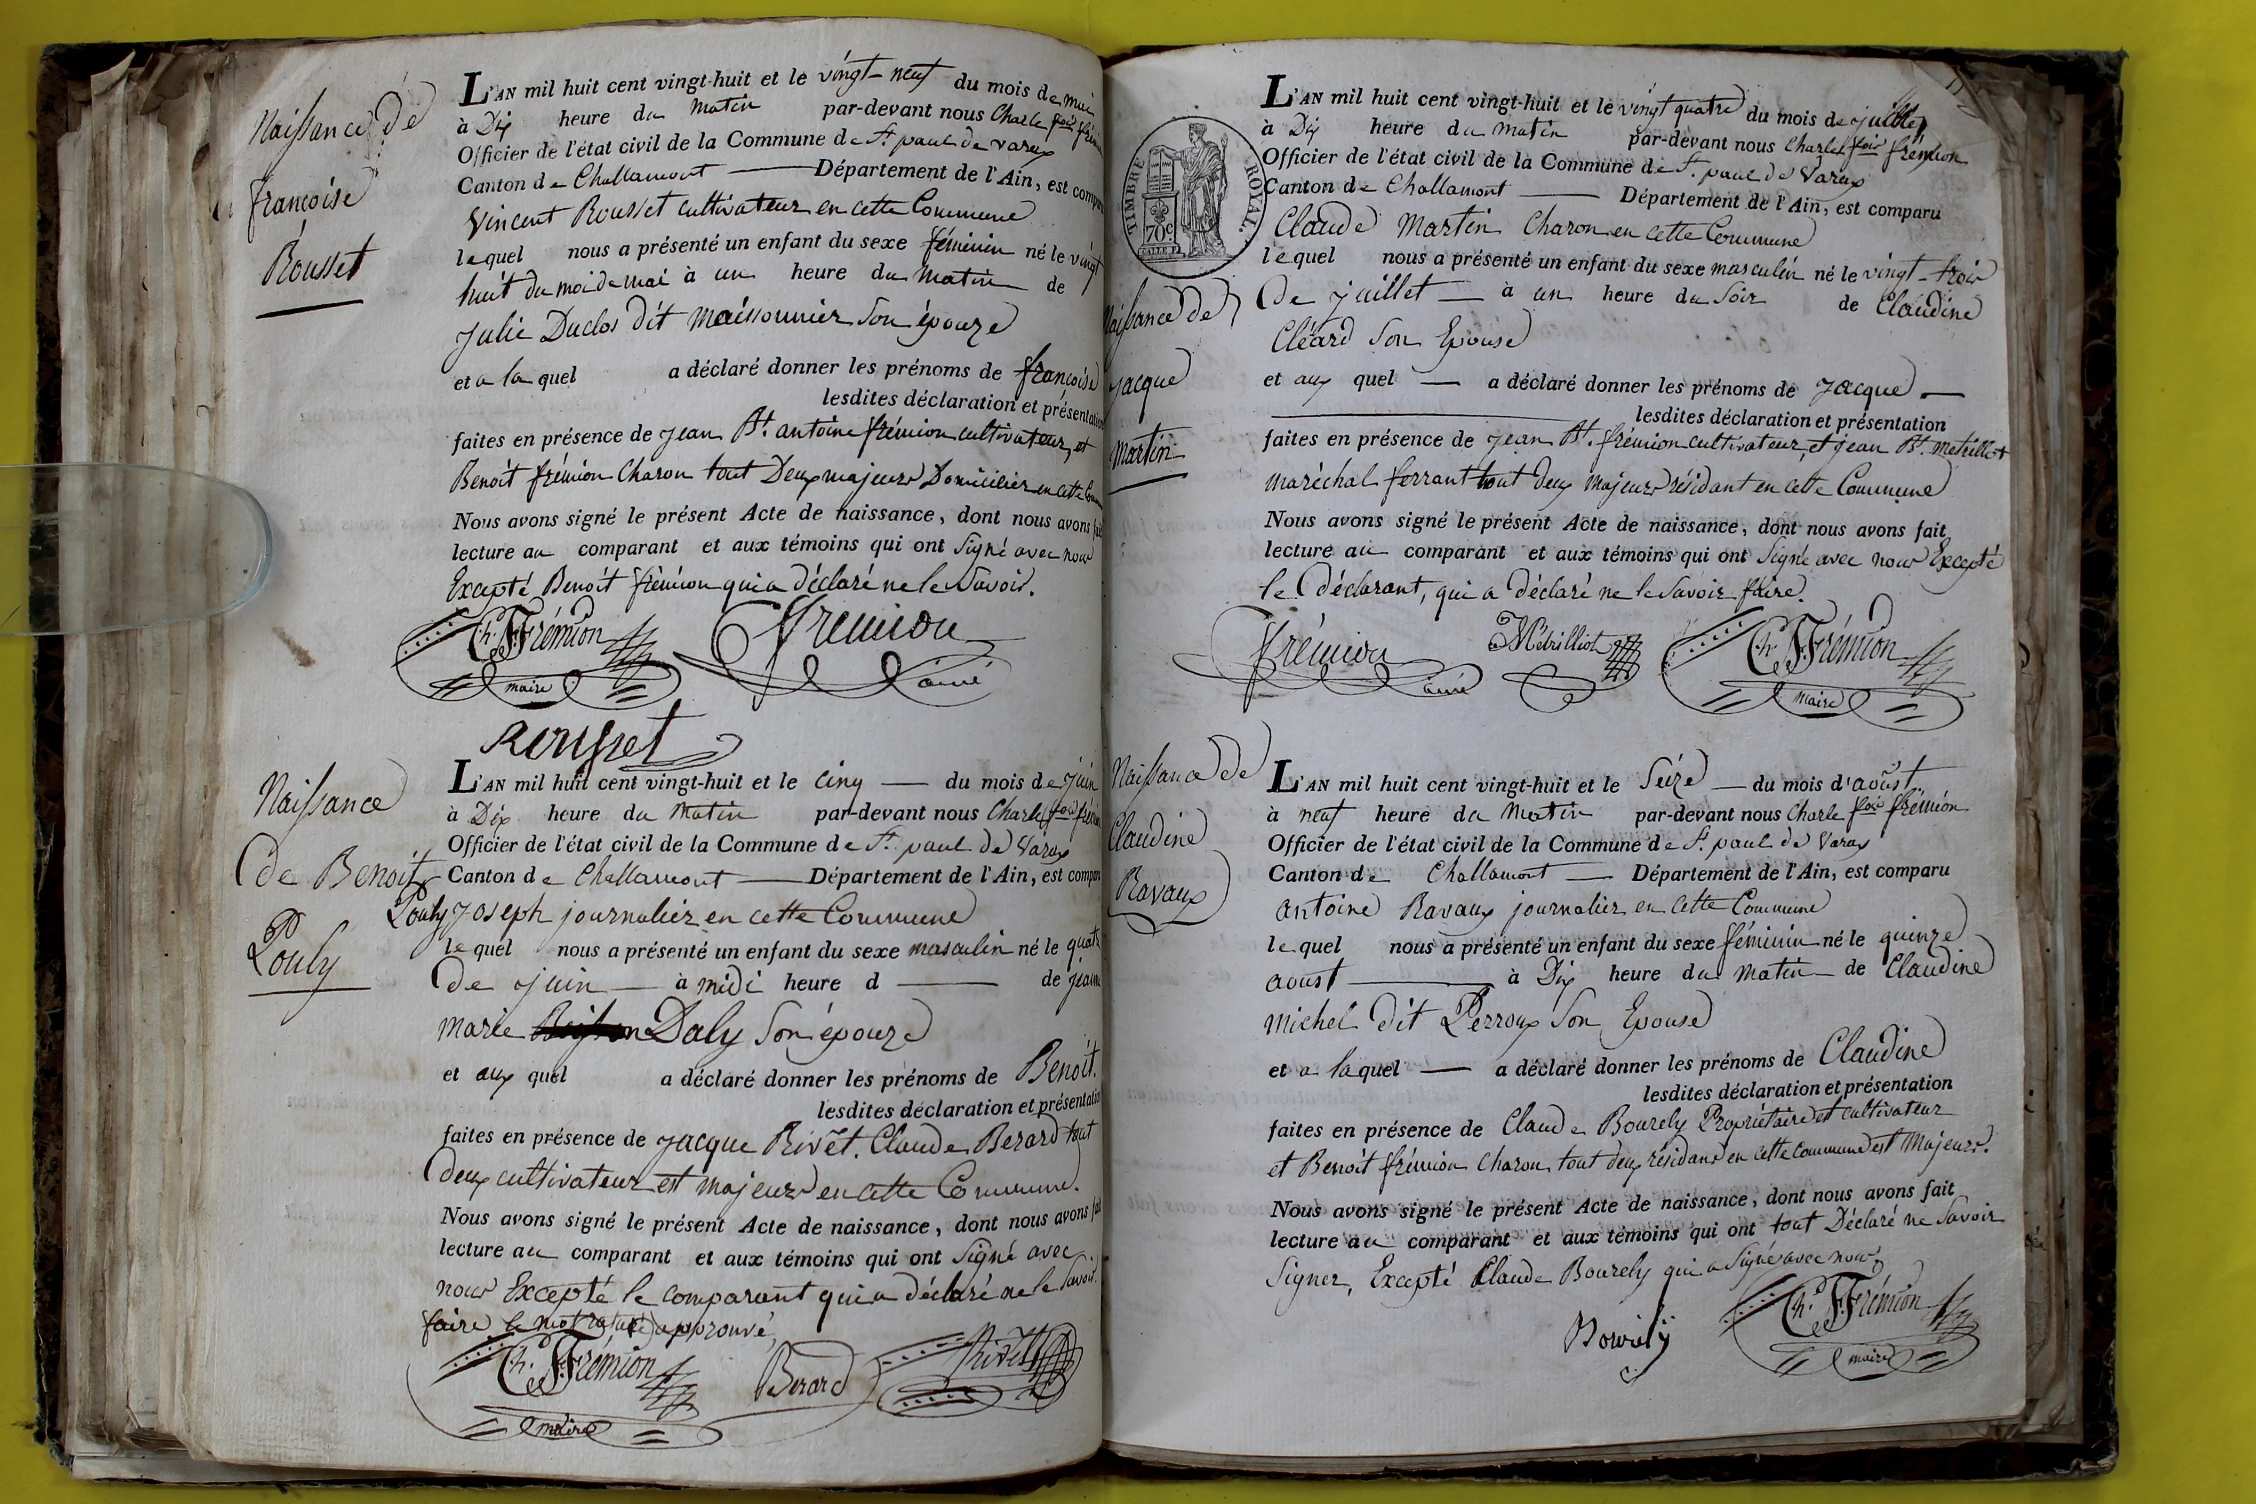 Naissance de
françoise
Rousset
L'AN mil huit cent vingt-huit et le vingt-neuf du mois de mai
à Dix heure du matin par-devant nous Charle fois frémion
Officier de l'état civil de la Commune de St. paul de varax
Canton de Challamont — Département de l'Ain, est comparu
Vincent Rousset cultivateur en cette Commune
lequel nous a présenté un enfant du sexe féminin né le vingt
huit du moi de mai à un heure du matin de
Julie Duclos dit maissonnier son épouze
et a la quel a déclaré donner les prénoms de françoise
lesdites déclaration et présentation
faites en présence de jean Bt. antoine frémion cultivateur, et
Benoît frémion Charon tout Deux majeurs Domicilier en cette Commune
Nous avons signé le présent Acte de naissance, dont nous avons fait
lecture au comparant et aux témoins qui ont Signé avec nous
Excepté Benoît frémion qui a déclaré ne le Savoir.
Ch. F. Frémion
maire
frémion
ainé
Rousset
Naissance
de Benoit
Pouly
L'AN mil huit cent vingt-huit et le cinq — du mois de juin
à Dix heure du matin par-devant nous Charle fois frémion
Officier de l'état civil de la Commune de St. paul de Varax
Canton de Challamont — Département de l'Ain, est comparu
Pouly Joseph journalier en cette Commune
lequel nous a présenté un enfant du sexe masculin né le quatre
de juin — à midi heure d — de jeanne
marie Daly son épouze
et aux quel a déclaré donner les prénoms de Benoît.
lesdites déclaration et présentation
faites en présence de jacque Rivet. Claude Berard tout
deux cultivateur est majeurs en cette Commune.
Nous avons signé le présent Acte de naissance, dont nous avons fait
lecture au comparant et aux témoins qui ont Signé avec
nous Excepté le comparant qui a déclaré ne le Savoir
faire le mot raturé approuvé,
Ch. F. Frémion
maire
Berard
Rivet
TIMBRE ROYAL.
70c.
Naissance de
jacque
Martin
L'AN mil huit cent vingt-huit et le vingt quatre du mois de juillet
à Dix heure du matin par-devant nous Charles fois frémion
Officier de l'état civil de la Commune de St. paul de Varax
Canton de Challamont — Département de l'Ain, est comparu
Claude Martin Charon en cette Commune
lequel nous a présenté un enfant du sexe masculin né le vingt-trois
de juillet — à un heure du Soir de Claudine
Cléard Son Epouse
et aux quel — a déclaré donner les prénoms de jacque —
— lesdites déclaration et présentation
faites en présence de jean Bt. frémion cultivateur, et jean Bt. metrilliot
maréchal ferrant tout deux majeurs résidant en cette Commune
Nous avons signé le présent Acte de naissance, dont nous avons fait
lecture au comparant et aux témoins qui ont Signé avec nous Excepté
le déclarant, qui a déclaré ne le Savoir faire.
frémion
ainé
Metrilliot
Ch. F. Frémion
maire
Naissance de
Claudine
Ravaux
L'AN mil huit cent vingt-huit et le Seize — du mois d'aoûst
à neuf heure du Matin par-devant nous Charle fois frémion
Officier de l'état civil de la Commune de St. paul de Varax
Canton de Challamont — Département de l'Ain, est comparu
antoine Ravaux journalier en cette Commune
lequel nous a présenté un enfant du sexe féminin né le quinze
aoust — à Dix heure du matin — de Claudine
michel dit Perroux Son Epouse
et a laquel — a déclaré donner les prénoms de Claudine
lesdites déclaration et présentation
faites en présence de Claude Bourely Propriétaire et cultivateur
et Benoît frémion Charon tout deux résidans en cette commune est Majeurs.
Nous avons signé le présent Acte de naissance, dont nous avons fait
lecture au comparant et aux témoins qui ont tout Déclaré ne Savoir
Signer, Excepté Claude Bourely qui a Signé avec nous
Ch. F. Frémion
maire